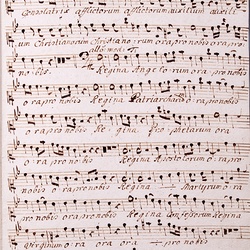 consolatrix afflictorum afflictorum auxilium auxili
um Christianorum Christiano rum ora pro nobis ora pro
allo modi
nobis. Regina Angelo rum ora pro nobis
ora pro nobis Regina Patriarcharū o ra pro nobis
ora pro nobis Re gina Prophetarum ora
o ra pro nobis Regina Apostolorum o ra pro
nobis ora pro nobis Regina Martyrum o ra
pro nobis ora pro nobis Regina Confessorum Regina
Virginum o ra ora ora pro nobis